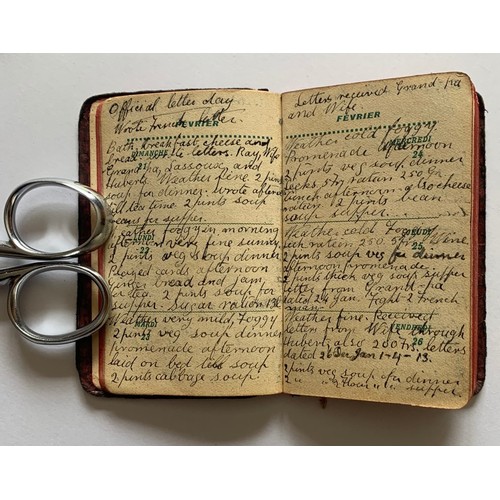 Official letter day
Wrote French letter
FÉVRIER
Bath, breakfast, cheese and
bread. Wrote letters Ray, Wife
DIMANCHE
21
Grandpa, Lassouve, and
Huberts. Weather fine. 2 pints
soup for dinner. wrote afternoon
till tea time 2 pints soup
beans for supper.
Weather foggy in morning
LUNDI
22
afternoon very fine sunny
2 pints veg soup dinner
Played cards afternoon
Ginger bread and jam
for tea. 2 pints soup for
supper. Sugar ration
Weather very mild, foggy
MARDI
23
2 pints veg soup dinner
Promenade afternoon
laid on bed less soup
2 pints cabbage soup
Letters received Grand-pa
and Wife.
FÉVRIER
Weather cold foggy
MERCREDI
24
Promenade afternoon
2 pints veg soup dinner
afternoon. 40 cheese
ration 12 pints bean
soup supper
Weather cold
JEUDI
25
ration 250 grs.
2 pints veg for dinner
afternoon promenade
2 pints thick veg soup supper
letter from Grand-pa
dated 24 Jan. Fight 2 French
men
Weather fine. Received
letter from Wife through
VENDREDI
26
Huberts also 280 frs. letters
dated 26 Dec Jan 1-4-13.
2 pints veg soup for dinner
2 " " supper